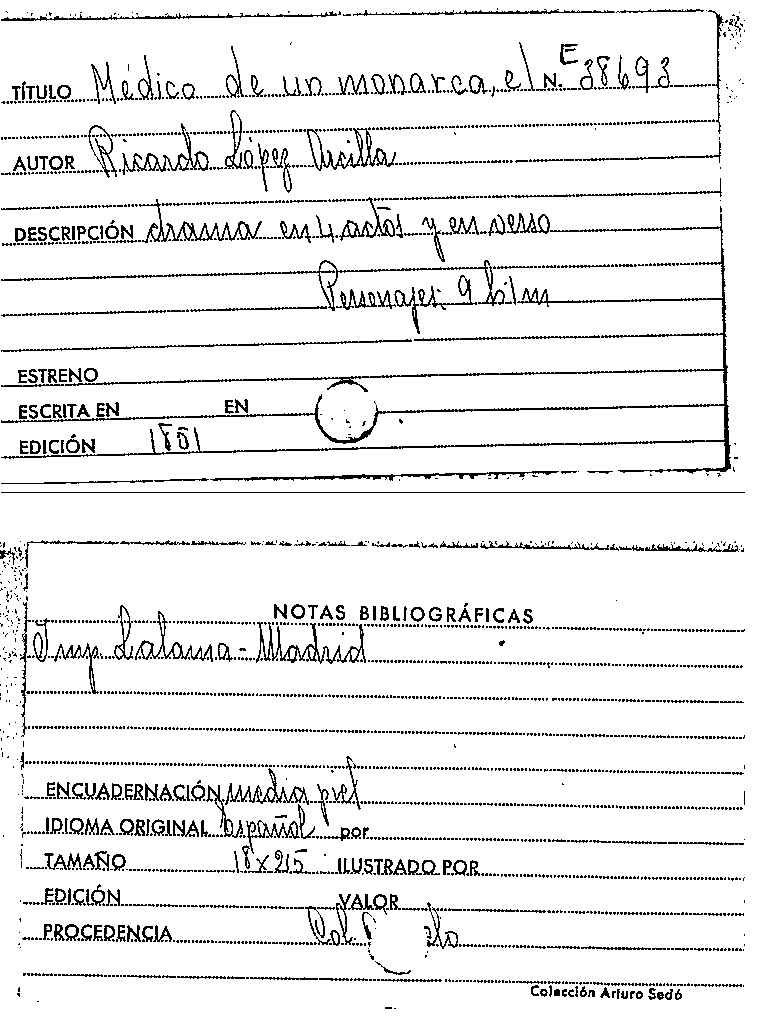 TÍTULO Médico de un monarca, el N. E 38693
AUTOR Ricardo López Arcilla
DESCRIPCIÓN drama en 4 actos y en verso
Personajes: 9 h. 1 m
ESTRENO
ESCRITA EN EN
EDICIÓN 1851
NOTAS BIBLIOGRÁFICAS
Imp Lalama - Madrid
ENCUADERNACIÓN media piel
IDIOMA ORIGINAL español por
TAMAÑO 18 x 215 ILUSTRADO POR
EDICIÓN VALOR
PROCEDENCIA Col
Colección Arturo Sedó